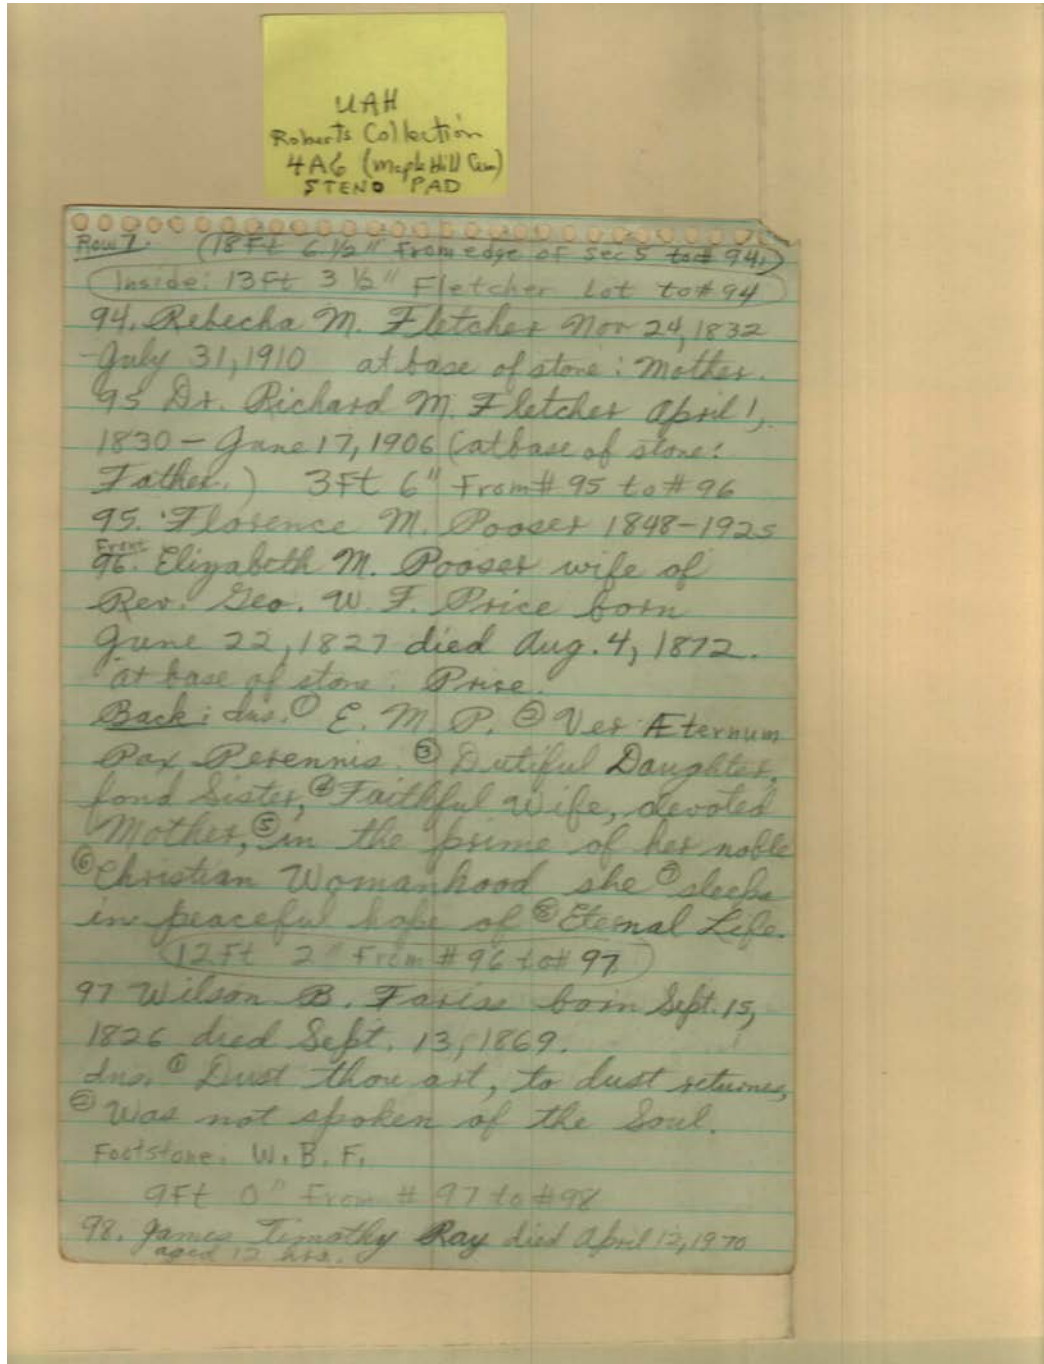 UAH
Roberts Collection
4A6 (Maple Hill Cem)
STENO PAD
Row 7. (18 Ft 6 1/2" From edge of Sec 5 to # 94.)
Inside: 13 Ft 3 1/2" Fletcher Lot to # 94
94. Rebecha M. Fletcher Nov 24, 1832
- July 31, 1910 at base of stone: Mother.
95 Dr. Richard M. Fletcher April 1,
1830 - June 17, 1906 (at base of stone:
Father.) 3 Ft 6" From # 95 to # 96
95. Florence M. Pooser 1848-1925
Front
96. Elizabeth M. Pooser wife of
Rev. Geo. W. F. Price born
June 22, 1827 died Aug. 4, 1872.
at base of stone: Price.
Back: ins. ① E. M. P. ② Ver Æternum
Pax Perennis. ③ Dutiful Daughter,
fond Sister, ④ Faithful Wife, devoted
Mother, ⑤ in the prime of her noble
⑥ Christian Womanhood she ⑦ sleeps
in peaceful hope of ⑧ Eternal Life.
12 Ft 2" From # 96 to # 97
97 Wilson B. Fariss born Sept. 15,
1826 died Sept. 13, 1869.
ins. ① Dust thou art, to dust returnes,
② Was not spoken of the Soul.
Footstone: W. B. F.
9 Ft 0" From # 97 to # 98
98. James Timothy Ray died April 12, 1970
aged 12 hrs.